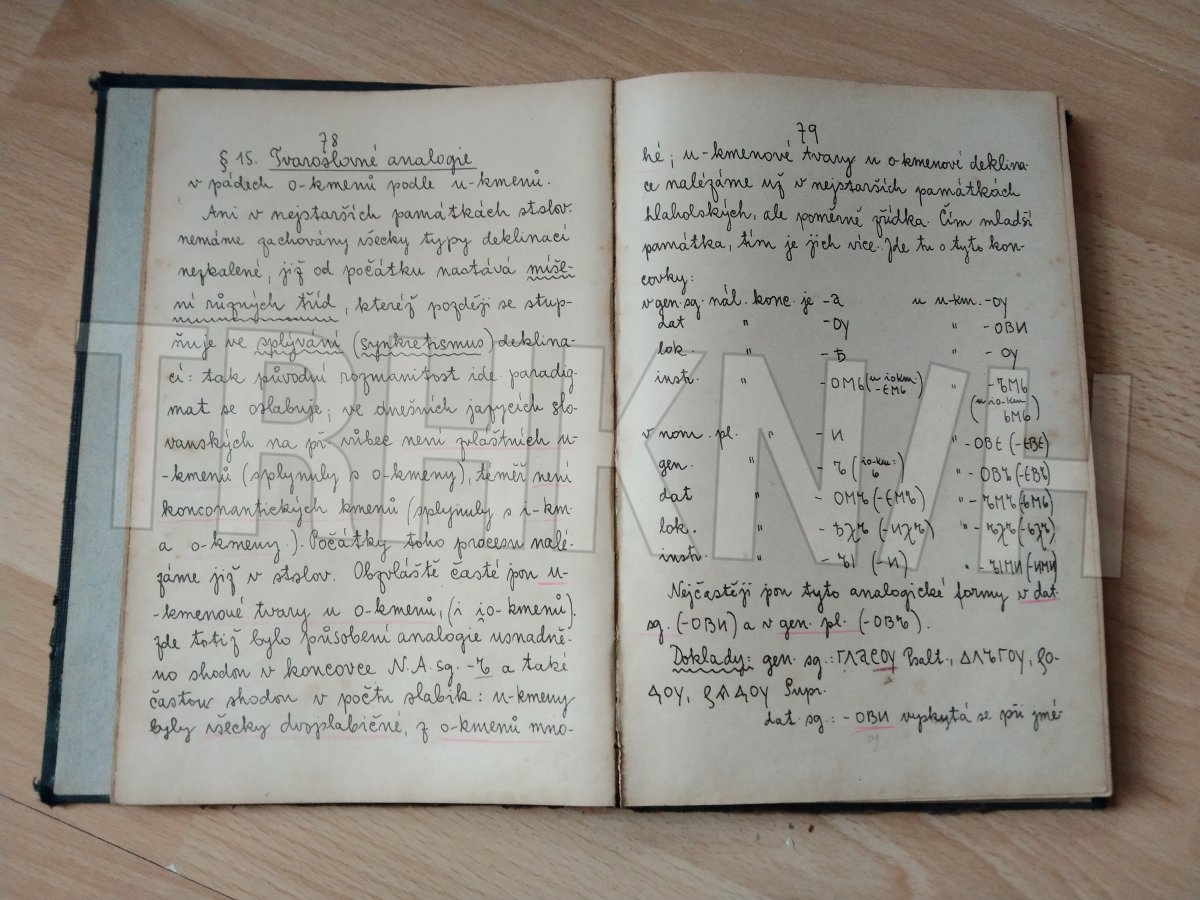 78
§ 15. Tvaroslovné analogie
v pádech o-kmenů podle u-kmenů.
Ani v nejstarších památkách stslov.
nemáme zachovány všecky typy deklinací
nezkalené; již od počátku nastává míše-
ní různých tříd, kteréž později se stup-
ňuje ve splývání (synkretismus) deklina-
cí: tak původní rozmanitost ide. paradig-
mat se oslabuje; ve dnešních jazycích slo-
vanských na př. vůbec není zvláštních u-
-kmenů (splynuly s o-kmeny), téměř není
konconantických kmenů (splynuly s i-km.
a o-kmeny). Počátky toho procesu nalé-
záme již v stslov. Obzvláště časté jsou u-
-kmenové tvary u o-kmenů, (i i̯o-kmenů).
Zde totiž bylo působení analogie usnadně-
no shodou v koncovce N.A.sg. -ъ a také
častou shodou v počtu slabik: u-kmeny
byly všecky dvojslabičné, z o-kmenů mno-
79
hé; u-kmenové tvary u o-kmenové deklina-
ce nalézáme už v nejstarších památkách
hlaholských, ale poměrně zřídka. Čím mladší
památka, tím je jich více. Jde tu o tyto kon-
covky:
v gen. sg. nál. konc. je -а u u-km. -оу
dat " -оу " -ови
lok. " -ѣ " -оу
instr. " -омь (u io km. -емь) " -ъмь (u io-km. ьмь)
v nom. pl. " -и " -ове (-еве)
gen. " -ъ (io-km: ь) " -овъ (-евъ)
dat " -омъ (-емъ) " -ъмъ (-ьмъ)
lok. " -ѣхъ (-ихъ) " -ъхъ (-ьхъ)
instr. " -ъі (-и) " -ъми (-ьми)
Nejčastěji jsou tyto analogické formy v dat.
sg. (-ови) a v gen. pl. (-овъ).
Doklady: gen. sg.: гласоу Psalt., длъгоу, ро-
доу, рѧдоу Supr.
dat. sg.: -ови vyskytá se při jmé-